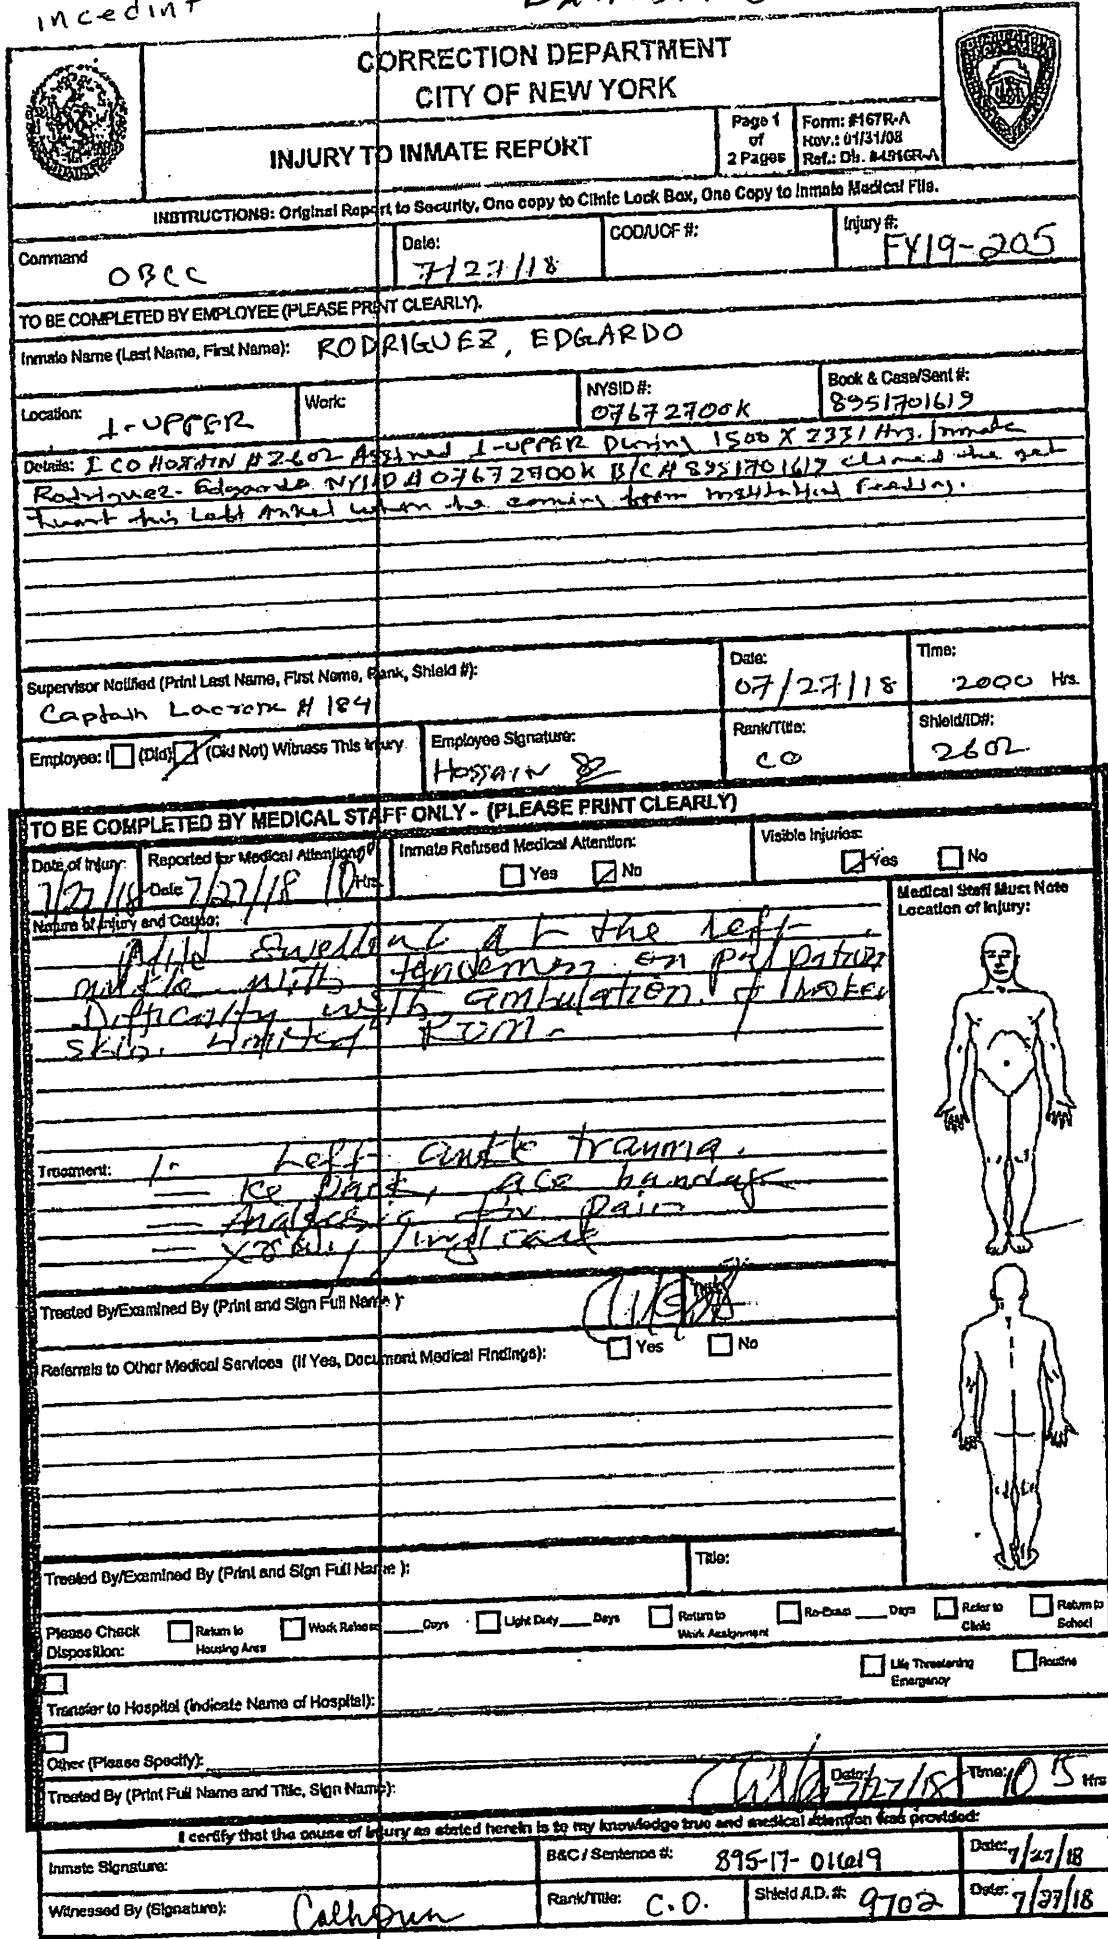 incedint
CORRECTION DEPARTMENT
CITY OF NEW YORK
INJURY TO INMATE REPORT
Page 1
of
2 Pages
Form: #167R-A
Rev.: 01/31/08
Ref.: Dir. #4516R-A
INSTRUCTIONS: Original Report to Security, One copy to Clinic Lock Box, One Copy to Inmate Medical File.
Command
OBCC
Date:
7/27/18
COD/UOF #:
Injury #:
FY19-205
TO BE COMPLETED BY EMPLOYEE (PLEASE PRINT CLEARLY).
Inmate Name (Last Name, First Name): RODRIGUEZ, EDGARDO
Location:
1-UPPER
Work:
NYSID #:
07672700K
Book & Case/Sent #:
8951701619
Details: I CO HOSSAIN #2602 Assined 1-UPPER During 1500 X 2331 Hrs. Inmate
Rodriguez- Edgardo NYSID # 07672700K B/C # 8951701619 claimed the get
twart his Left Ankel when he coming from Feeding.
Supervisor Notified (Print Last Name, First Name, Rank, Shield #):
Captain # 184
Date:
07/27/18
Time:
2000 Hrs.
Employee: I (Did) (Did Not) Witness This Injury
Employee Signature:
HOSSAIN
Rank/Title:
CO
Shield/ID#:
2602
TO BE COMPLETED BY MEDICAL STAFF ONLY - (PLEASE PRINT CLEARLY)
Date of Injury:
7/27/18
Reported for Medical Attention
Date 7/27/18 10 Hrs
Inmate Refused Medical Attention:
Yes
No
Visible Injuries:
Yes
No
Nature of Injury and Cause:
Mild swelling at the left
ankle with tenderness on palpation
Difficulty with ambulation.
skin. Limited ROM.
Medical Staff Must Note
Location of Injury:
Treatment: 1. Left ankle trauma.
— Ice pack, ace bandage
— Analgesic for pain
— Xray
Treated By/Examined By (Print and Sign Full Name ):
Title:
Referrals to Other Medical Services (If Yes, Document Medical Findings):
Yes
No
Treated By/Examined By (Print and Sign Full Name ):
Title:
Please Check
Disposition:
Return to
Housing Area
Work Release ____ Days
Light Duty ____ Days
Return to
Work Assignment
Re-Exam ____ Days
Refer to
Clinic
Return to
School
Life Threatening
Emergency
Routine
Transfer to Hospital (Indicate Name of Hospital):
Other (Please Specify):
Treated By (Print Full Name and Title, Sign Name):
Date: 7/27/18
Time: 10 Hrs
I certify that the cause of injury as stated herein is to my knowledge true and medical attention was provided:
Inmate Signature:
B&C / Sentence #: 895-17-01619
Date: 7/27/18
Witnessed By (Signature): Calhoun
Rank/Title: C.O.
Shield /I.D. #: 9702
Date: 7/27/18